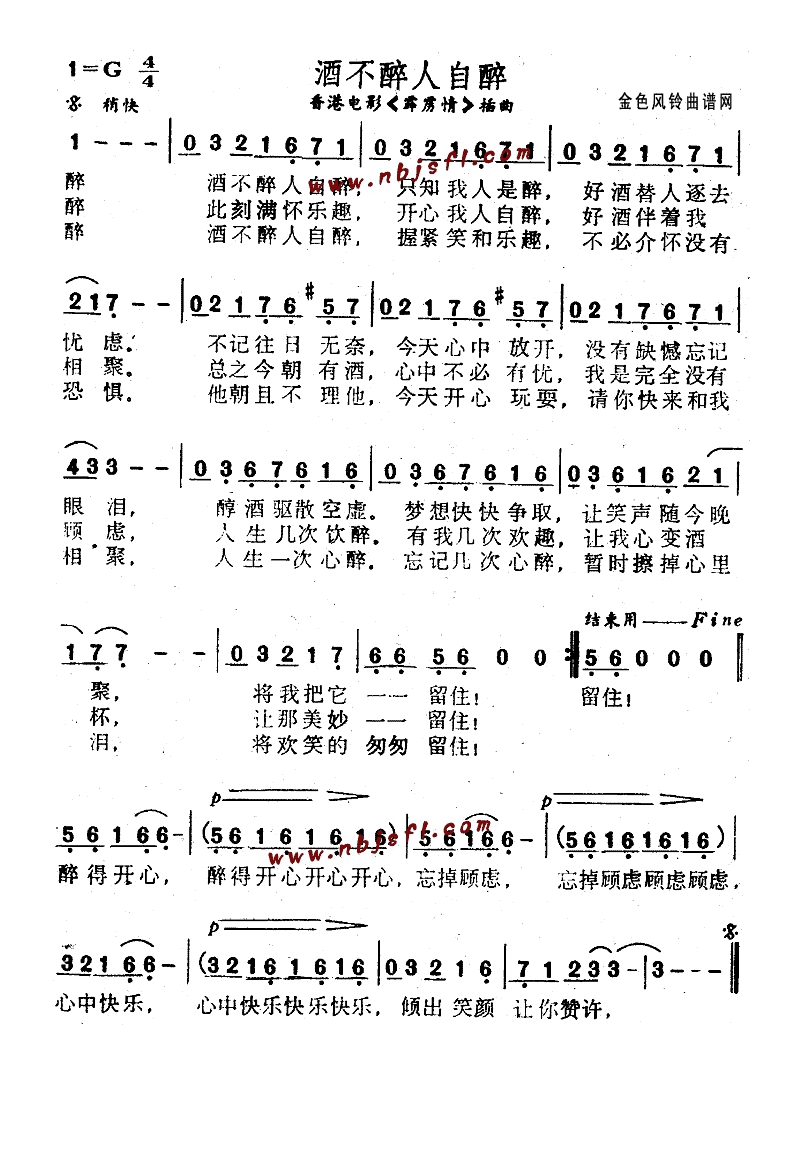 1=G 4/4 酒不醉人自醉
稍快 香港电影《霹雳情》插曲 金色风铃曲谱网
1 - - - | 0 3 2 1 6 7 1 | 0 3 2 1 6 7 1 | 0 3 2 1 6 7 1 |
www.nbjsfl.com
醉 酒不醉人自醉, 只知我人是醉, 好酒替人逐去
醉 此刻满怀乐趣, 开心我人自醉, 好酒伴着我
醉 酒不醉人自醉, 握紧笑和乐趣, 不必介怀没有
2 1 7 - - | 0 2 1 7 6 #5 7 | 0 2 1 7 6 #5 7 | 0 2 1 7 6 7 1 |
忧虑. 不记往日 无奈, 今天心中 放开, 没有缺憾忘记
相聚. 总之今朝 有酒, 心中不必 有忧, 我是完全没有
恐惧. 他朝且不 理他, 今天开心 玩耍, 请你快来和我
4 3 3 - - | 0 3 6 7 6 1 6 | 0 3 6 7 6 1 6 | 0 3 6 1 6 2 1 |
眼泪, 醇酒驱散空虚. 梦想快快争取, 让笑声随今晚
顾虑, 人生几次饮醉. 有我几次欢趣, 让我心变酒
相聚, 人生一次心醉. 忘记几次心醉, 暂时擦掉心里
结束用——Fine
1 7 7 - - | 0 3 2 1 7 | 6 6 5 6 0 0 :| 5 6 0 0 0 |
聚, 将我把它 一一 留住! 留住!
杯, 让那美妙 一一 留住!
泪, 将欢笑的 匆匆 留住!
p p
5 6 1 6 6 - | (5 6 1 6 1 6 1 6) | 5 6 1 6 6 - | (5 6 1 6 1 6 1 6) |
www.nbjsfl.com
醉得开心, 醉得开心开心开心, 忘掉顾虑, 忘掉顾虑顾虑顾虑,
p
3 2 1 6 6 - | (3 2 1 6 1 6 1 6) | 0 3 2 1 6 | 7 1 2 3 3 - | 3 - - - ‖
心中快乐, 心中快乐快乐快乐, 倾出笑颜 让你赞许,